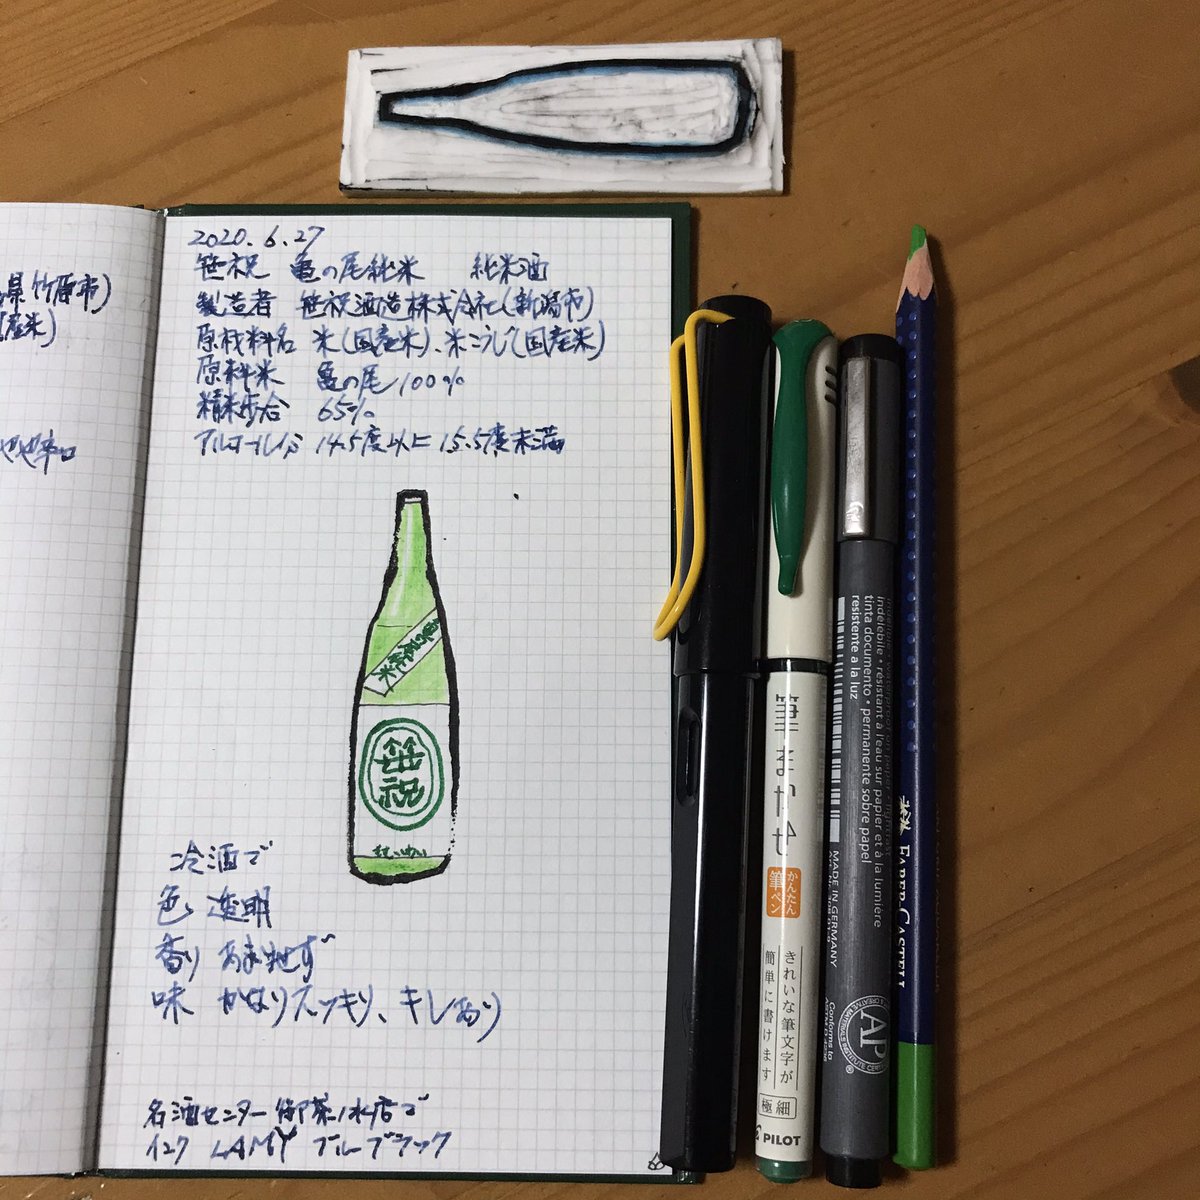 県竹原市)
産米)
やや辛口
2020.6.27
笹祝 亀の尾純米 純米酒
製造者 笹祝酒造株式会社(新潟市)
原材料名 米(国産米)、米こうじ(国産米)
原料米 亀の尾100%
精米歩合 65%
アルコール分 14.5度以上15.5度未満
亀の尾純米
笹祝
冷酒で
色 透明
香り あまりせず
味 かなりスッキリ、キレあり
名酒センター御茶ノ水店で
インク LAMY ブルーブラック
筆まかせ
かんたん
筆ペン
きれいな筆文字が
簡単に書けます
極細
PILOT
indélébile • résistant à l'eau sur papier et à la lumière
tinta documento • permanente sobre papel
resistente a la luz
MADE IN GERMANY
AP
Conforms to
FABER-CASTELL